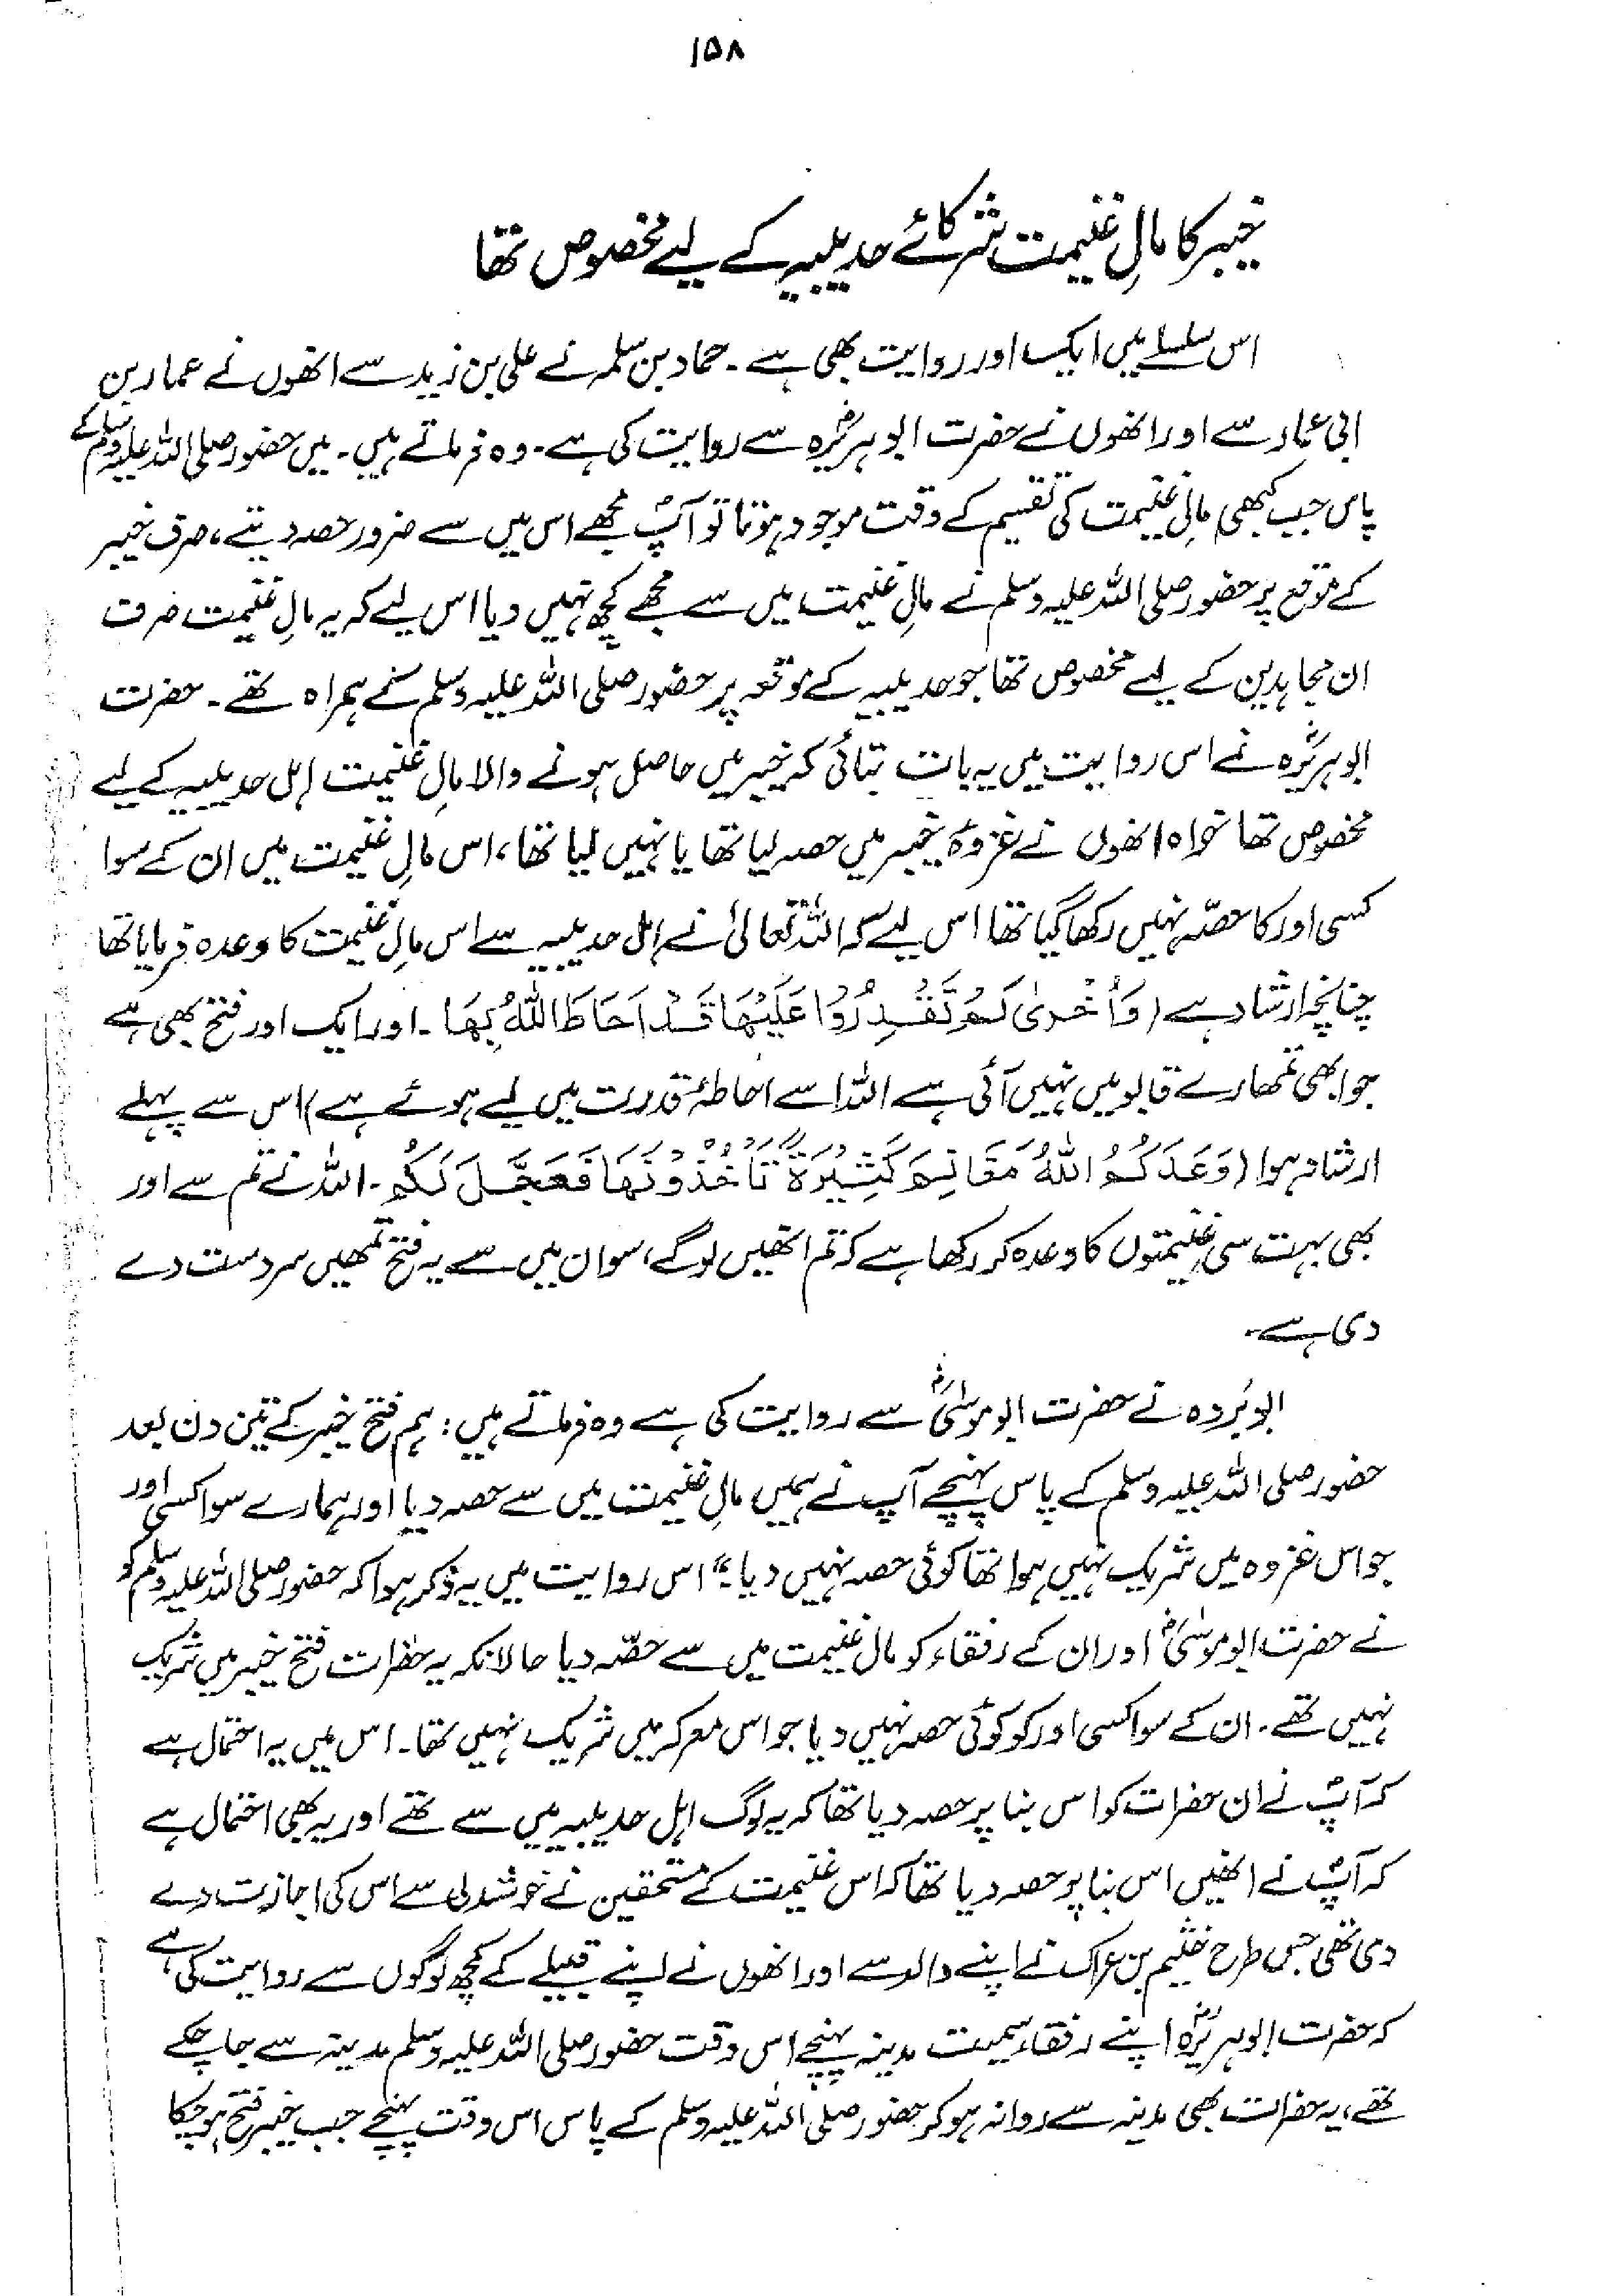 ۱۵۸
خیبر کا مالِ غنیمت شرکائے حدیبیہ کے لیے مخصوص تھا
اس سلسلے میں ایک اور روایت بھی ہے۔ حماد بن سلمہ نے علی بن زید سے انھوں نے عمار بن
ابی عمار سے اور انھوں نے حضرت ابوہریرہؓ سے روایت کی ہے۔ وہ فرماتے ہیں۔ میں حضور صلی اللہ علیہ وسلم کے
پاس جب کبھی مالِ غنیمت کی تقسیم کے وقت موجود ہوتا تو آپؐ مجھے اس میں سے ضرور حصہ دیتے، صرف خیبر
کے موقع پر حضور صلی اللہ علیہ وسلم نے مالِ غنیمت میں سے مجھے کچھ نہیں دیا اس لیے کہ یہ مالِ غنیمت صرف
ان مجاہدین کے لیے مخصوص تھا جو حدیبیہ کے موقعہ پر حضور صلی اللہ علیہ وسلم کے ہمراہ تھے۔ حضرت
ابوہریرہؓ نے اس روایت میں یہ بات بتائی کہ خیبر میں حاصل ہونے والا مالِ غنیمت اہل حدیبیہ کے لیے
مخصوص تھا خواہ انھوں نے غزوۂ خیبر میں حصہ لیا تھا یا نہیں لیا تھا، اس مالِ غنیمت میں ان کے سوا
کسی اور کا حصّہ نہیں رکھا گیا تھا اس لیے کہ اللہ تعالیٰ نے اہل حدیبیہ سے اس مالِ غنیمت کا وعدہ فرمایا تھا
چنانچہ ارشاد ہے (وَاُخْرٰی لَمْ تَقْدِرُوْا عَلَیْهَا قَدْ اَحَاطَ اللهُ بِهَا۔ اور ایک اور فتح بھی ہے
جو ابھی تمھارے قابو میں نہیں آئی ہے اللہ اسے احاطۂ قدرت میں لیے ہوئے ہے) اس سے پہلے
ارشاد ہوا (وَعَدَکُمُ اللهُ مَغَانِمَ کَثِیْرَةً تَأْخُذُوْنَهَا فَعَجَّلَ لَکُمْ۔ اللہ نے تم سے اور
بھی بہت سی غنیمتوں کا وعدہ کر رکھا ہے کہ تم انھیں لوگے، سو ان میں سے یہ فتح تمھیں سردست دے
دی ہے۔
ابوبُردہ نے حضرت ابوموسیٰؓ سے روایت کی ہے وہ فرماتے ہیں: ہم فتح خیبر کے تین دن بعد
حضور صلی اللہ علیہ وسلم کے پاس پہنچے آپ نے ہمیں مالِ غنیمت میں سے حصہ دیا اور ہمارے سوا کسی اور
جو اس غزوہ میں شریک نہیں ہوا تھا کوئی حصہ نہیں دیا۔" اس روایت میں یہ ذکر ہوا کہ حضور صلی اللہ علیہ وسلم کو
نے حضرت ابوموسیٰؓ اور ان کے رفقاء کو مال غنیمت میں سے حصّہ دیا حالانکہ یہ حضرات فتح خیبر میں شریک
نہیں تھے۔ ان کے سوا کسی اور کو کوئی حصہ نہیں دیا جو اس معرکہ میں شریک نہیں تھا۔ اس میں یہ احتمال ہے
کہ آپؐ نے ان حضرات کو اس بنا پر حصہ دیا تھا کہ یہ لوگ اہل حدیبیہ میں سے تھے اور یہ بھی احتمال ہے
کہ آپؐ نے انھیں اس بنا پر حصہ دیا تھا کہ اس غنیمت کے مستحقین نے خوشدلی سے اس کی اجازت دے
دی تھی جس طرح خثیم بن عراک نے اپنے والد سے اور انھوں نے اپنے قبیلے کے کچھ لوگوں سے روایت کی ہے
کہ حضرت ابوہریرہؓ اپنے رفقاء سمیت مدینہ پہنچے اس وقت حضور صلی اللہ علیہ وسلم مدینہ سے جا چکے
تھے، یہ حضرات بھی مدینہ سے روانہ ہو کر حضور صلی اللہ علیہ وسلم کے پاس اس وقت پہنچے جب خیبر فتح ہو چکا